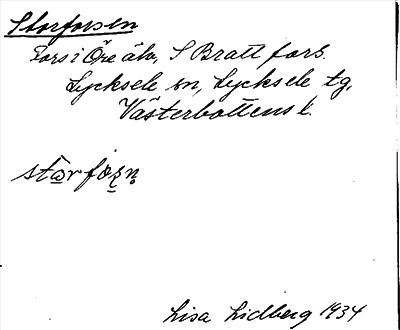 Storforsen
Fors i Öre älv, S Brattfors.
Lycksele sn, Lycksele tg,
Västerbottens l.
Lisa Lidberg 1934